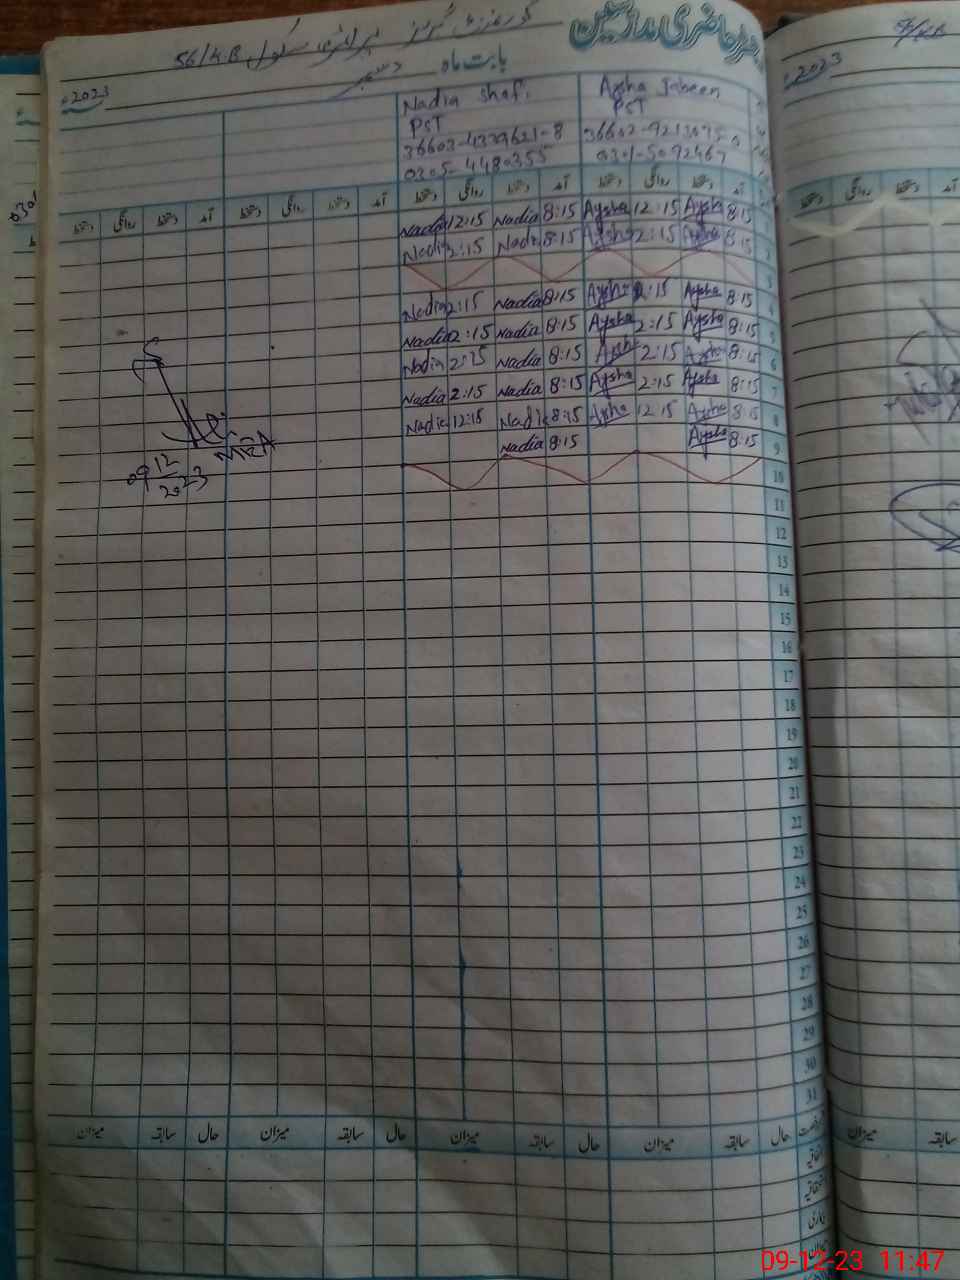 رجسٹر حاضری مدرسین
گورنمنٹ گرلز پرائمری سکول 56/KB
بابت ماہ دسمبر 2023ء
Aysha Jabeen
PST
0301-5072467
Nadia Shafi
PST
36603-4339621-8
0305-4480355
آمد دستخط روانگی دستخط آمد دستخط روانگی دستخط آمد دستخط روانگی دستخط آمد دستخط روانگی دستخط
1 8:15 Aysha 12:15 Aysha 8:15 Nadia 12:15 Nadia
2 8:15 Aysha 2:15 Aysha 8:15 Nadia 2:15 Nadia
3
4 8:15 Aysha 2:15 Aysha 8:15 Nadia 2:15 Nadia
5 8:15 Aysha 2:15 Aysha 8:15 Nadia 2:15 Nadia
6 8:15 Aysha 2:15 Aysha 8:15 Nadia 2:15 Nadia
7 8:15 Aysha 2:15 Aysha 8:15 Nadia 2:15 Nadia
8 8:15 Aysha 12:15 Aysha 8:15 Nadia 12:15 Nadia
9 8:15 Aysha 8:15 Nadia
10
11
12
13
14
15
16
17
18
19
20
21
22
23
24
25
26
27
28
29
30
31
MEA
09 12
2023
حال سابقہ میزان حال سابقہ میزان حال سابقہ میزان حال سابقہ میزان
2023ء
دستخط روانگی دستخط آمد
میزان سابقہ
09-12-23 11:47